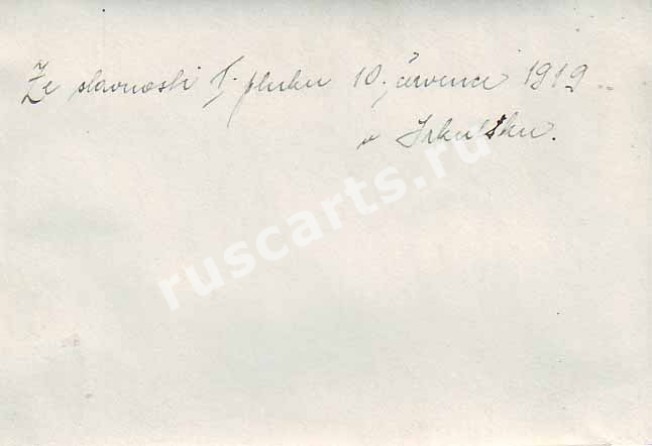 Ze slavnosti I. pluku 10. července 1919
v Irkutsku.
ruscarts.ru